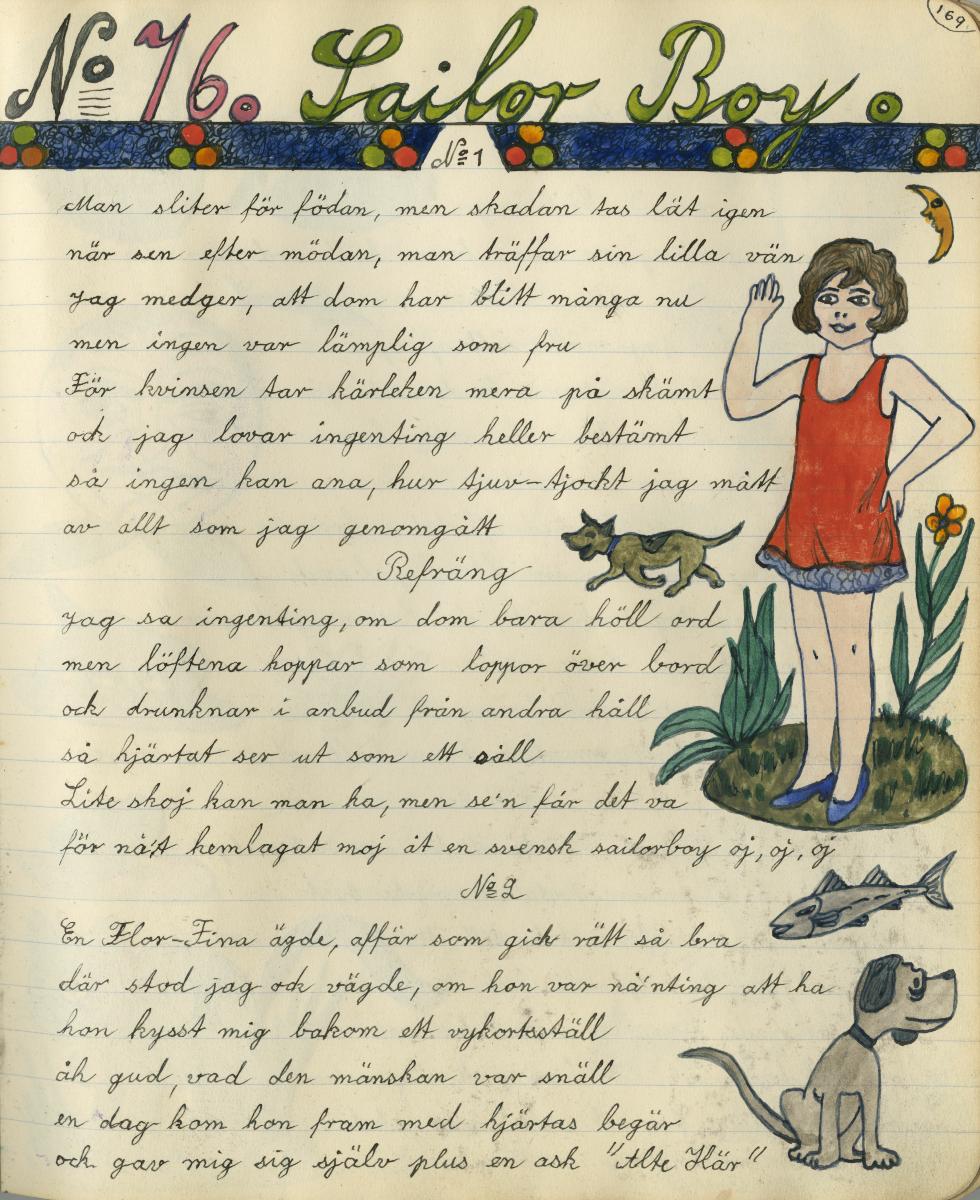 169
No 76. Sailor Boy.
No 1
Man sliter för födan, men skadan tas lät igen
när sen efter mödan, man träffar sin lilla vän
jag medger, att dom har blitt många nu
men ingen var lämplig som fru
För kvinsen tar kärleken mera på skämt
och jag lovar ingenting heller bestämt
så ingen kan ana, hur tjuv-tjockt jag mått
av allt som jag genomgått
Refräng
jag sa ingenting, om dom bara höll ord
men löftena hoppar som loppor över bord
och drunknar i anbud från andra håll
så hjärtat ser ut som ett såll
Lite skoj kan man ha, men se'n får det va
för nå't hemlagat moj åt en svensk sailorboy oj, oj, oj
No 2
En Flor-Fina ägde, affär som gick rätt så bra
där stod jag och vägde, om hon var nå'nting att ha
hon kysst mig bakom ett vykortsställ
åh gud, vad den mänskan var snäll
en dag kom hon fram med hjärtas begär
och gav mig sig själv plus en ask "Alte Här"